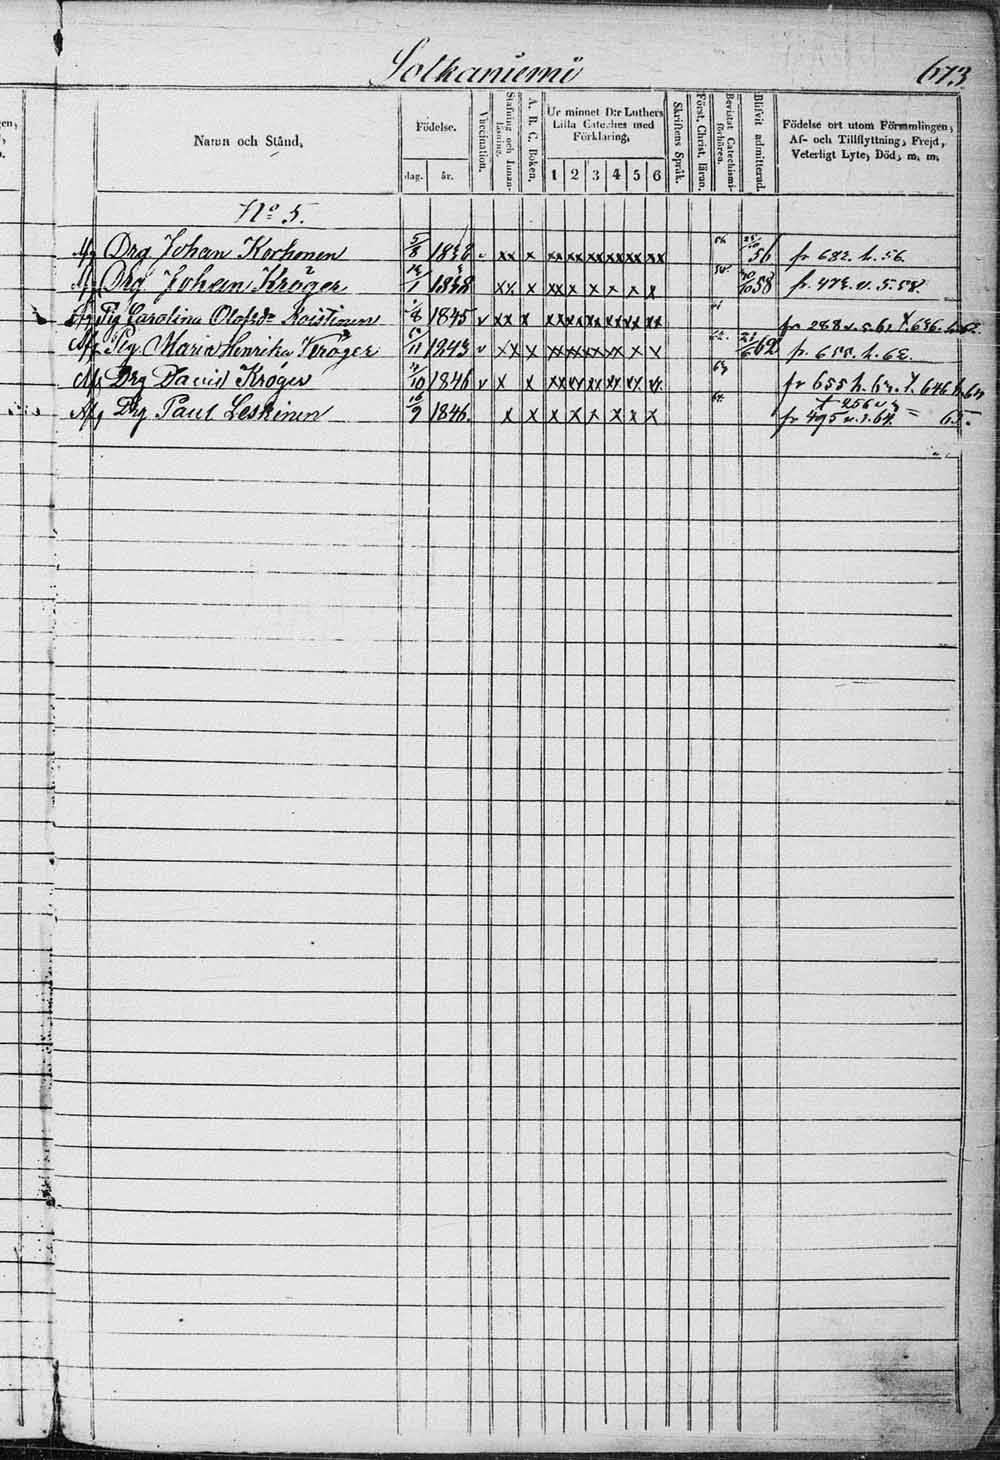 Solkaniemi 673
Namn och Stånd,
Födelse.
dag. år.
Vaccination.
Stafning och Innan-läsning.
A. B. C. Boken.
Ur minnet D:r Luthers Lilla Cateches med Förklaring,
1 2 3 4 5 6
Skriftens Språk.
Först. Christ. läran.
Bevistat Catechismi-förhören.
Blifvit admitterad.
Födelse ort utom Församlingen,
Af- och Tillflyttning, Frejd,
Veterligt Lyte, Död, m. m.
No 5.
Drg Johan Korhonen 5/8 1838 xx x xx xx xx xx xx xx 56 fr 682. h. 56.
Drg Johan Kröger 1838 xx x xx x x x x x 58 fr. 473. v. s. 58.
Pig Carolina Olofsdr Koistinen 1845 v xx x xx xx xx xx xx xx fr 288 v. s. 61
Pig Maria Henrika Kröger 1843 v xx x xx xx xx x x x 62 fr. 655. h. 62.
Drg David Kröger 1846 v x x xx xx xx xx xx xx fr 655 h. 63. 646 h. 64
Drg Paul Leskinen 16/9 1846. x x x x x x x x 64. fr 495 v. s. 64. 65.